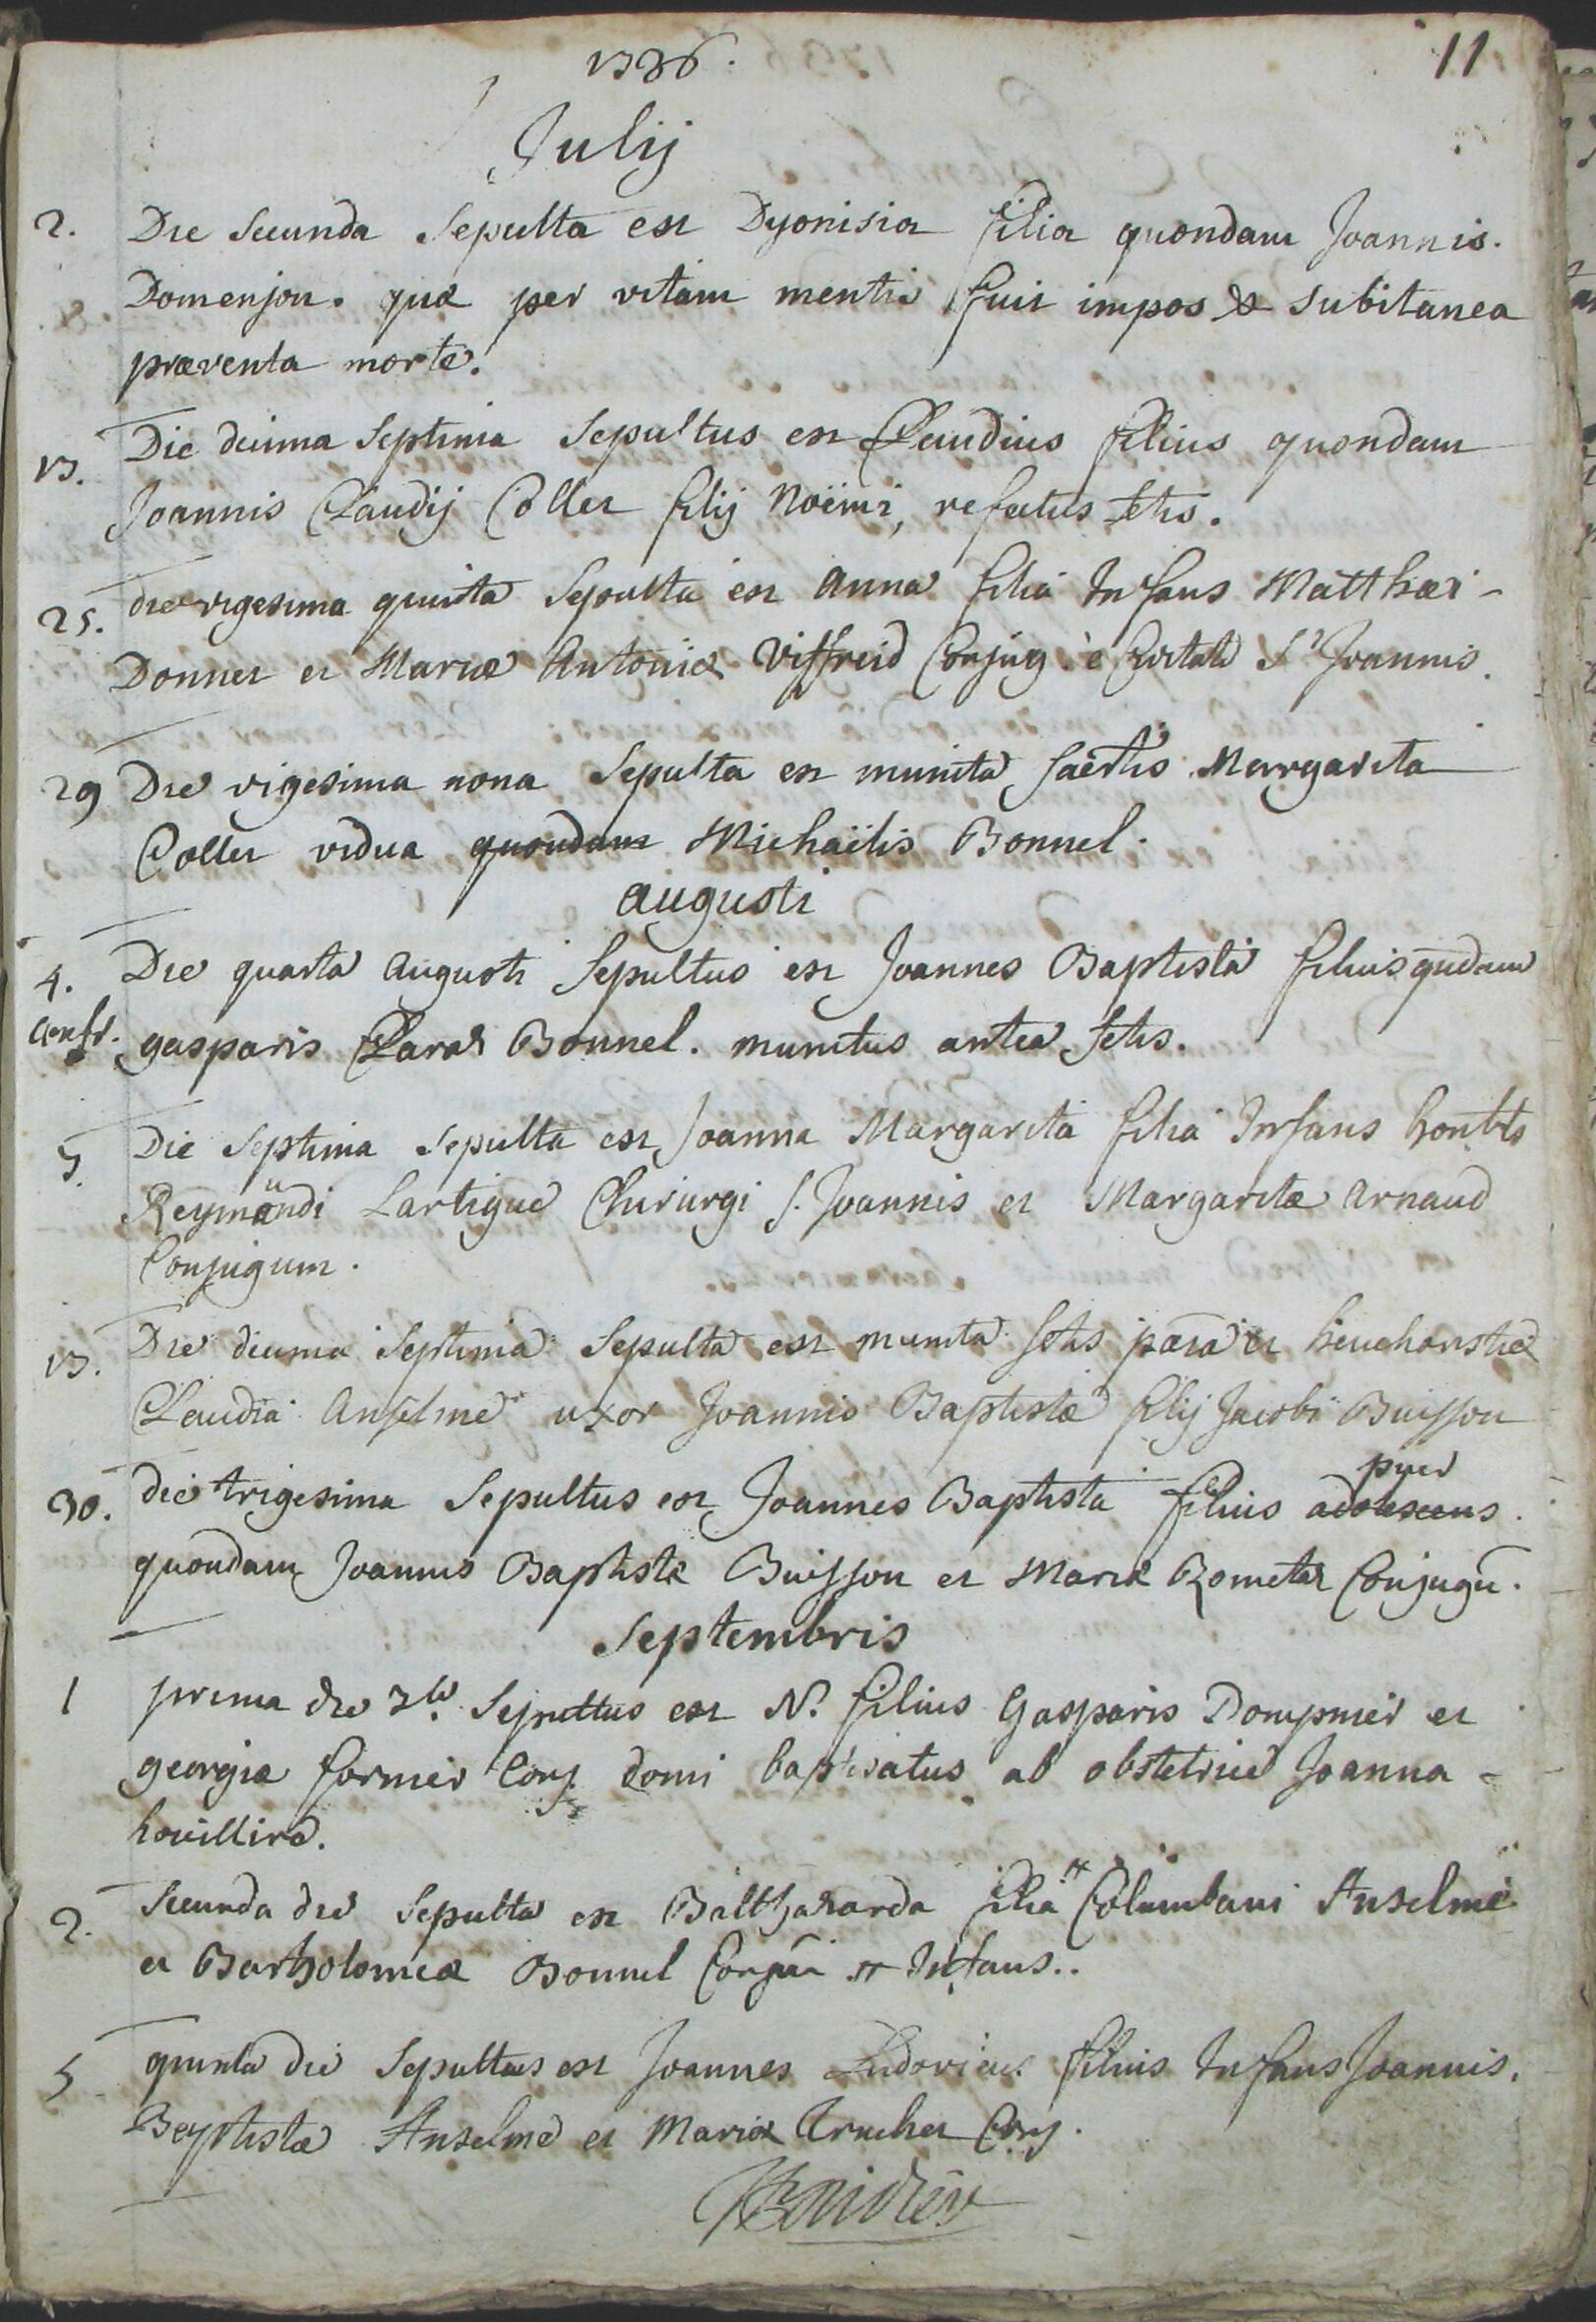 1736.
11
Julij
2. Die secunda Sepulta est Dyonisia filia quondam Joannis.
Domenjon. quæ per vitam mentis fuit impos & subitanea
præventa morte.
17. Die decima Septima Sepultus est Claudius filius quondam
Joannis Claudij Collet filij Noëmi, refectus sctis.
25. die vigesima quinta Sepulta est Anna filia Infans Matthæi -
Donnet et Mariæ Antoniæ Viffreid Conjug. è Civitate Sti Joannis.
29 Die vigesima nona Sepulta est munita sactis Margarita
Collet vidua quondam Michaëlis Bonnel.
augusti
4. Die quarta augusti Sepultus est Joannes Baptista filius qudam
Confr. gasparis Claraz Bonnel. munitus antea sctis.
7. Die Septima Sepulta est Joanna Margarita filia Infans honblis
Reymundi Lartigue Chirurgi S. Joannis et Margaritæ Arnaud
Conjugum.
17. Die decima Septima Sepulta est munita sctis pœniæ et heucharistiæ
Claudia Anselme uxor Joannis Baptistæ filij Jacobi Buisson
puer
30. die trigesima Sepultus est Joannes Baptista filius adolescens.
quondam Joannis Baptistæ Buisson et Mariæ Rometaz Conjugū.
Septembris
1 prima die 7bris. Sepultus est N. filius Gasparis Dompnier et
georgiæ fornier Conj. domi baptisatus ab obstetrice Joanna -
houillire.
2. Secunda die Sepulta est Balthazarda filia Columbani Anselme
et Bartholomeæ Bonnel Conjū Infans..
5 quinta die Sepultus est Joannes Ludovicus filius Infans Joannis.
Baptistæ Anselme et Mariæ Truchet Conj.